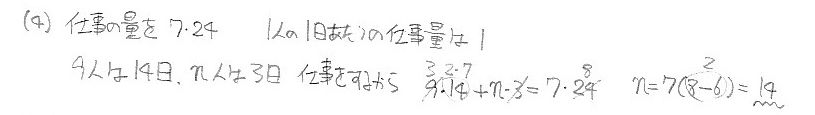 (4) 仕事の量を 7·24 1人の1日あたりの仕事量は 1
9人は14日、n人は3日 仕事をするから 9·14+n·3=7·24 n=7(8-6)=14